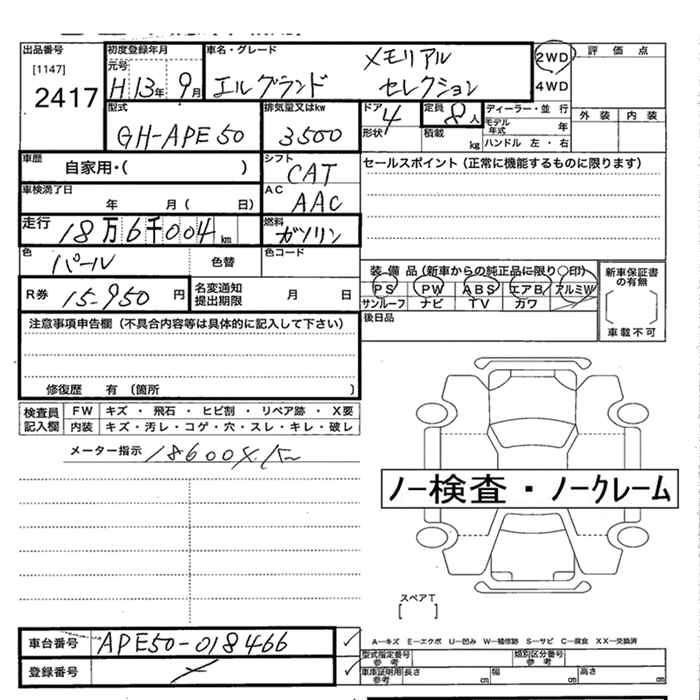 出品番号 初度登録年月 車名・グレード 評価点
[1147] 元号 メモリアル 2WD
2417 H13年9月 エルグランド セレクション 4WD
型式 排気量又はkw ドア 4 定員 8人 ディーラー・並行 外装 内装
GH-APE50 3500 形状 積載 kg モデル年式 年
ハンドル 左・右
車歴 自家用・( ) シフト CAT セールスポイント(正常に機能するものに限ります)
車検満了日 年 月( 日) AC AAC
走行 18万6千004km 燃料 ガソリン
色 パール 色替 色コード
装備品(新車からの純正品に限り○印) 新車保証書の有無
R券 15-950円 名変通知提出期限 月 日 PS PW ABS エアB アルミW
サンルーフ ナビ TV カワ [ ]
後日品 車載不可
注意事項申告欄(不具合内容等は具体的に記入して下さい)
修復歴 有 (箇所 )
検査員記入欄 FW キズ・飛石・ヒビ割・リペア跡・X要
内装 キズ・汚レ・コゲ・穴・スレ・キレ・破レ
メーター指示
ノー検査・ノークレーム
スペアT
[ ]
車台番号 APE50-018466
A―キズ E―エクボ U―凹み W―補修跡 S―サビ C―腐食 XX―交換済
型式指定番号参考 類別区分番号参考
登録番号
車庫証明用参考 長さ cm 幅 cm 高さ cm